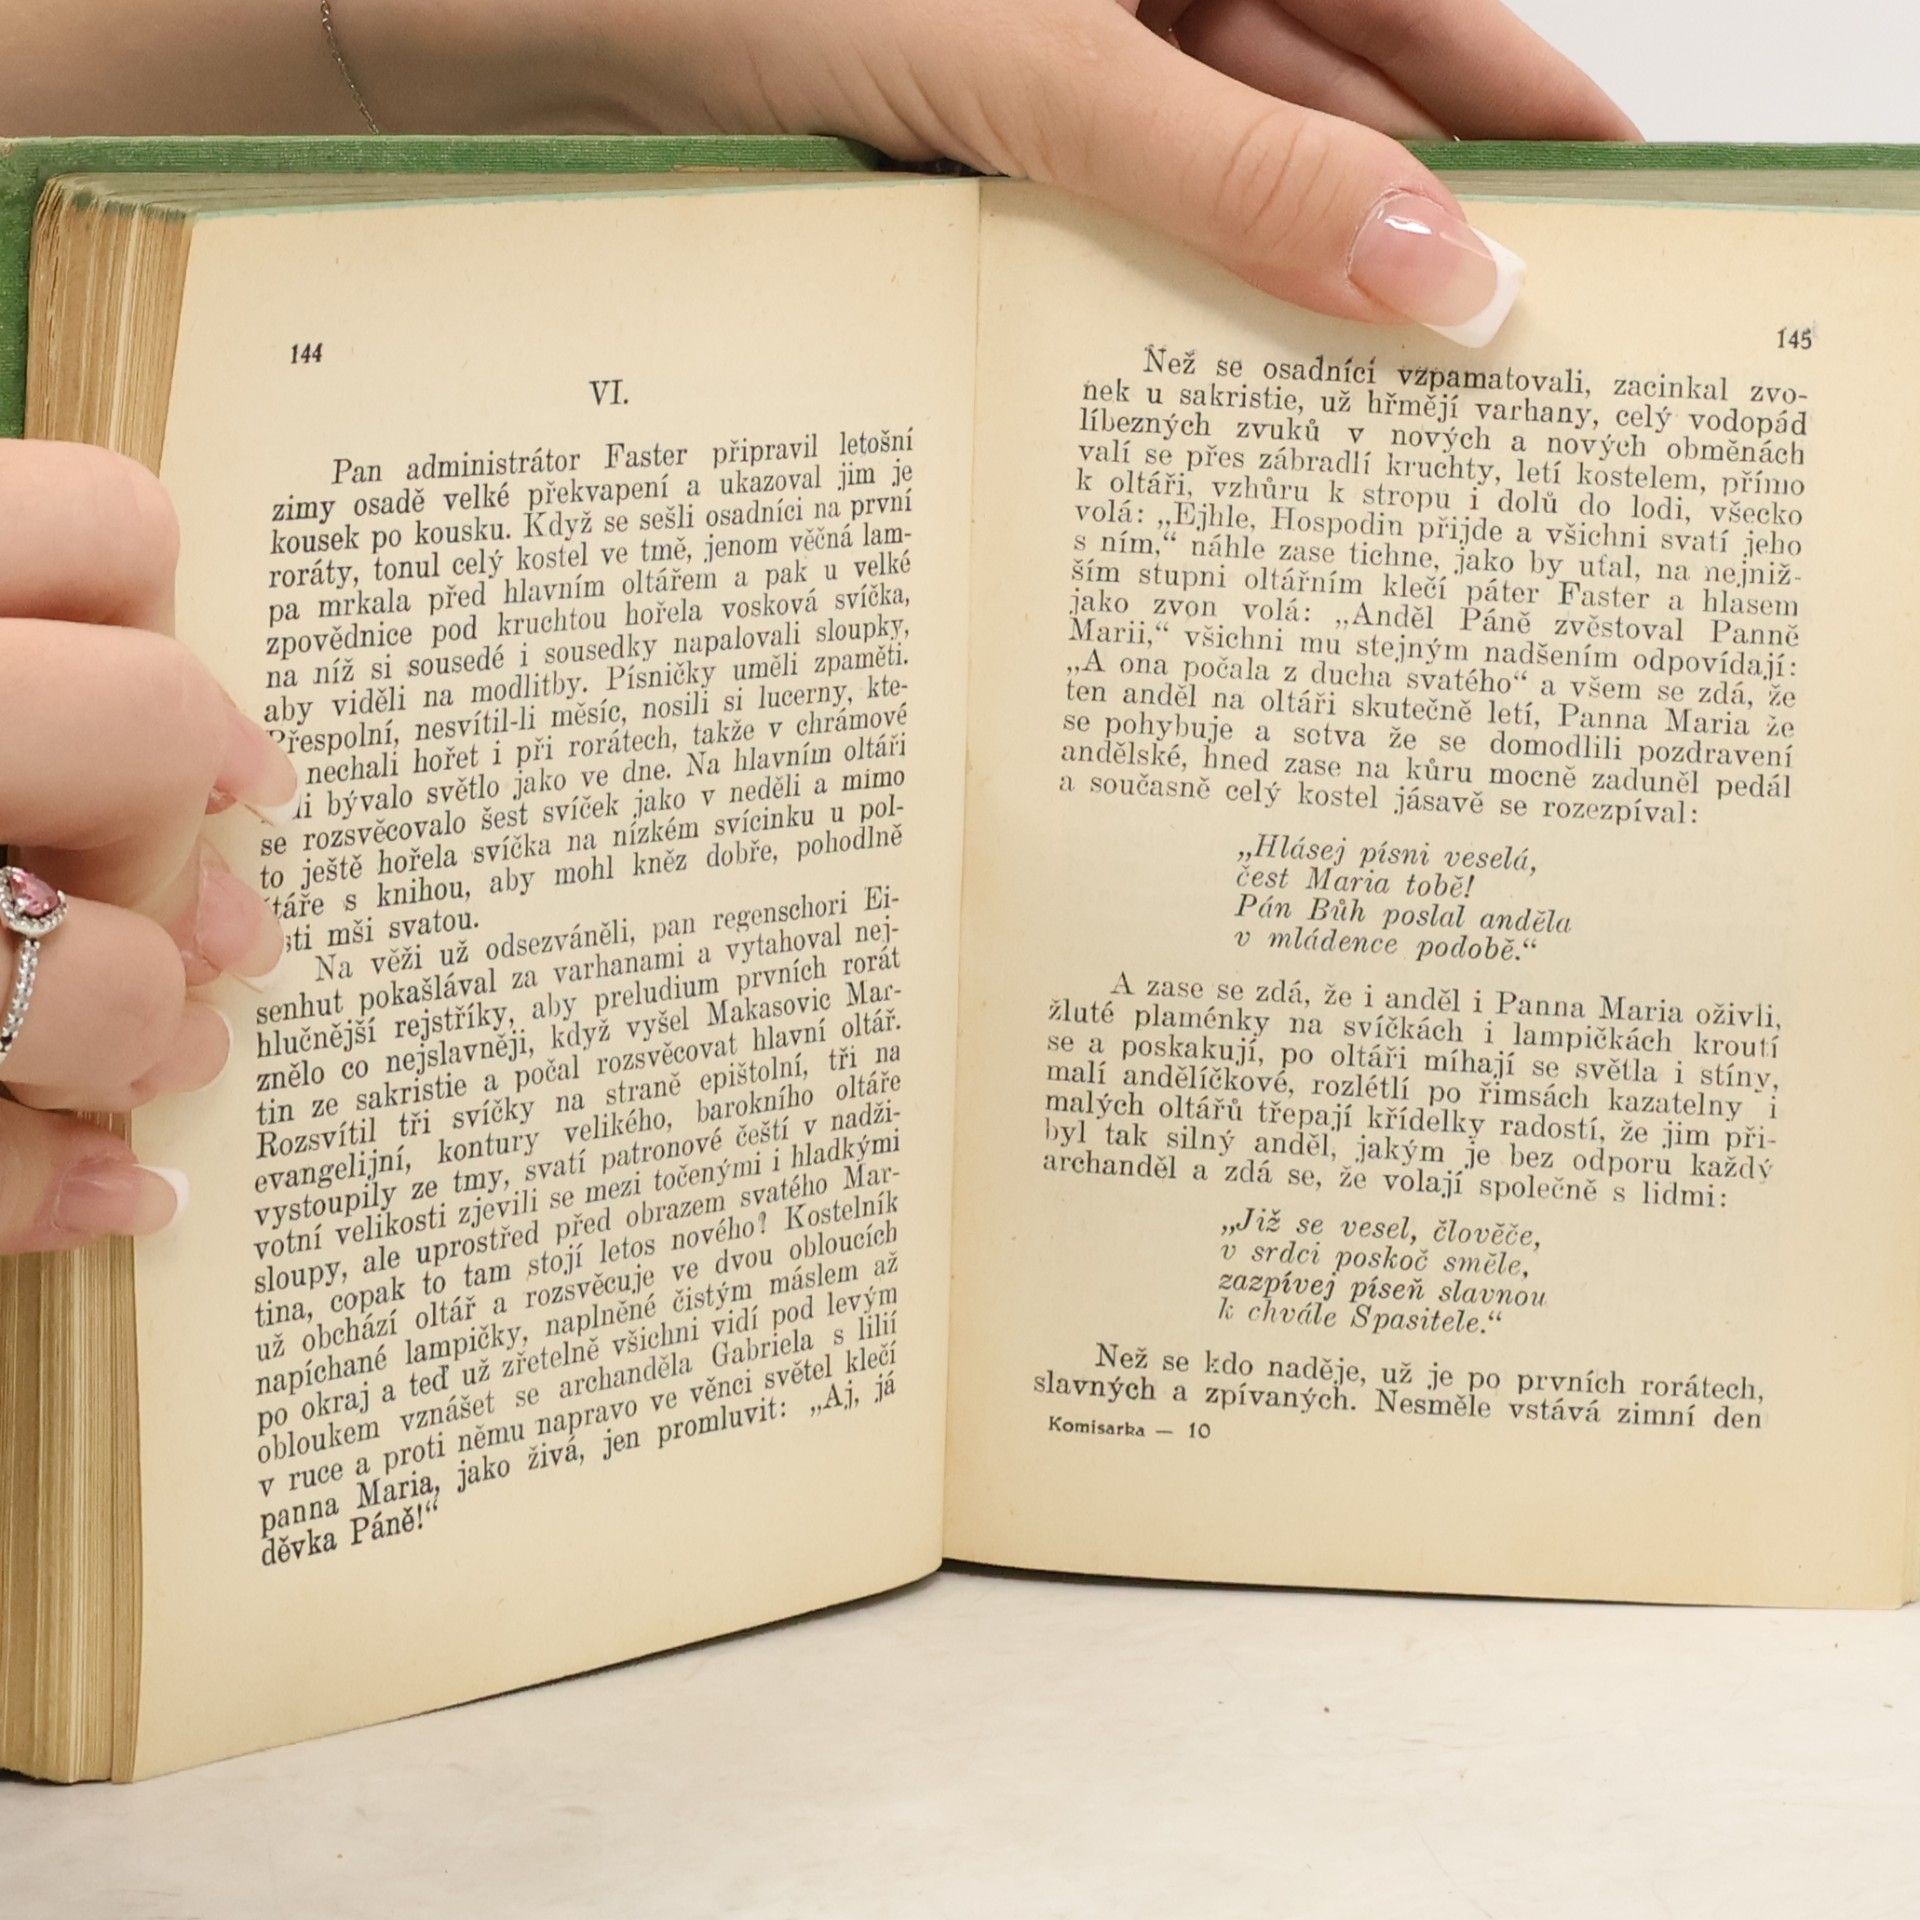 144
VI.
Pan administrátor Faster připravil letošní
zimy osadě velké překvapení a ukazoval jim je
kousek po kousku. Když se sešli osadníci na první
roráty, tonul celý kostel ve tmě, jenom věčná lam-
pa mrkala před hlavním oltářem a pak u velké
zpovědnice pod kruchtou hořela vosková svíčka,
na níž si sousedé i sousedky napalovali sloupky,
aby viděli na modlitby. Písničky uměli zpaměti.
Přespolní, nesvítil-li měsíc, nosili si lucerny, kte-
nechali hořet i při rorátech, takže v chrámové
bývalo světlo jako ve dne. Na hlavním oltáři
se rozsvěcovalo šest svíček jako v neděli a mimo
to ještě hořela svíčka na nízkém svícinku u pol-
s knihou, aby mohl kněz dobře, pohodlně
mši svatou.
Na věži už odsezváněli, pan regenschori Ei-
senhut pokašlával za varhanami a vytahoval nej-
hlučnější rejstříky, aby preludium prvních rorát
znělo co nejslavněji, když vyšel Makasovic Mar-
tin ze sakristie a počal rozsvěcovat hlavní oltář.
Rozsvítil tři svíčky na straně epištolní, tři na
evangelijní, kontury velikého, barokního oltáře
vystoupily ze tmy, svatí patronové čeští v nadži-
votní velikosti zjevili se mezi točenými i hladkými
sloupy, ale uprostřed před obrazem svatého Mar-
tina, copak to tam stojí letos nového? Kostelník
už obchází oltář a rozsvěcuje ve dvou obloucích
napíchané lampičky, naplněné čistým máslem až
po okraj a teď už zřetelně všichni vidí pod levým
obloukem vznášet se archanděla Gabriela s lilií
v ruce a proti němu napravo ve věnci světel klečí
panna Maria, jako živá, jen promluvit: „Aj, já
děvka Páně!“
145
Než se osadníci vzpamatovali, zacinkal zvo-
nek u sakristie, už hřmějí varhany, celý vodopád
líbezných zvuků v nových a nových obměnách
valí se přes zábradlí kruchty, letí kostelem, přímo
k oltáři, vzhůru k stropu i dolů do lodi, všecko
volá: „Ejhle, Hospodin přijde a všichni svatí jeho
s ním,“ náhle zase tichne, jako by uťal, na nejniž-
ším stupni oltářním klečí páter Faster a hlasem
jako zvon volá: „Anděl Páně zvěstoval Panně
Marii,“ všichni mu stejným nadšením odpovídají:
„A ona počala z ducha svatého“ a všem se zdá, že
ten anděl na oltáři skutečně letí, Panna Maria že
se pohybuje a sotva že se domodlili pozdravení
andělské, hned zase na kůru mocně zaduněl pedál
a současně celý kostel jásavě se rozezpíval:
„Hlásej písni veselá,
čest Maria tobě!
Pán Bůh poslal anděla
v mládence podobě.“
A zase se zdá, že i anděl i Panna Maria oživli,
žluté plaménky na svíčkách i lampičkách kroutí
se a poskakují, po oltáři míhají se světla i stíny,
malí andělíčkové, rozlétlí po římsách kazatelny i
malých oltářů třepají křídelky radostí, že jim při-
byl tak silný anděl, jakým je bez odporu každý
archanděl a zdá se, že volají společně s lidmi:
„Již se vesel, člověče,
v srdci poskoč směle,
zazpívej píseň slavnou
k chvále Spasitele.“
Než se kdo naděje, už je po prvních rorátech,
slavných a zpívaných. Nesměle vstává zimní den
Komisarka — 10